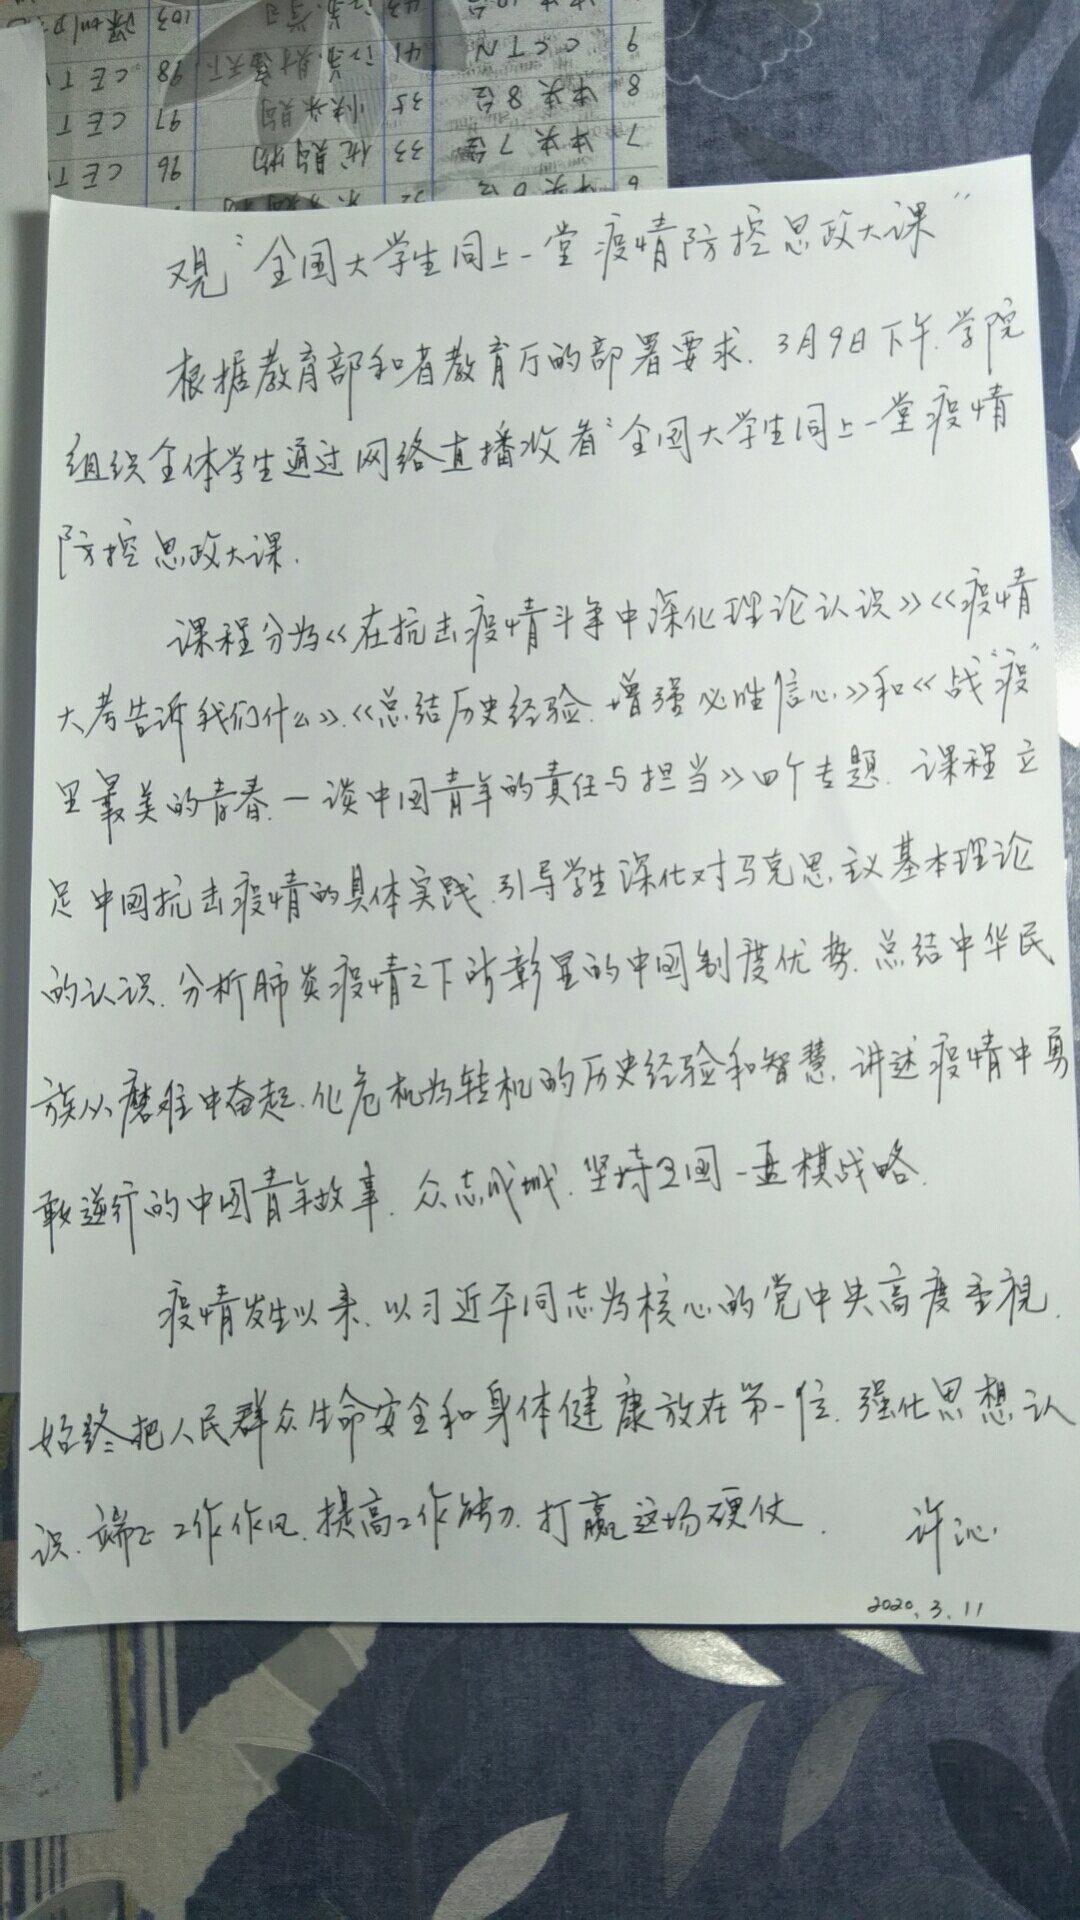 观"全国大学生同上一堂疫情防控思政大课"
根据教育部和省教育厅的部署要求.3月9日下午.学院
组织全体学生通过网络直播收看"全国大学生同上一堂疫情
防控思政大课.
课程分为《在抗击疫情斗争中深化理论认识》《疫情
大考告诉我们什么》.《总结历史经验.增强必胜信心》和《战"疫"
里最美的青春.一谈中国青年的责任与担当》四个专题.课程立
足中国抗击疫情的具体实践.引导学生深化对马克思主义基本理论
的认识.分析肺炎疫情之下所彰显的中国制度优势.总结中华民
族从磨难中奋起.化危机为转机的历史经验和智慧.讲述疫情中勇
敢逆行的中国青年故事.众志成城.坚持全国一盘棋战略.
疫情发生以来.以习近平同志为核心的党中央高度重视.
始终把人民群众生命安全和身体健康放在第一位.强化思想认
识.端正工作作风.提高工作能力.打赢这场硬仗.
许沁.
2020.3.11
6
7 中央7台 33 优购物 96 CET
8 中央8台 35 快乐购 97 CET
9 CCTN 41 98 CET
103